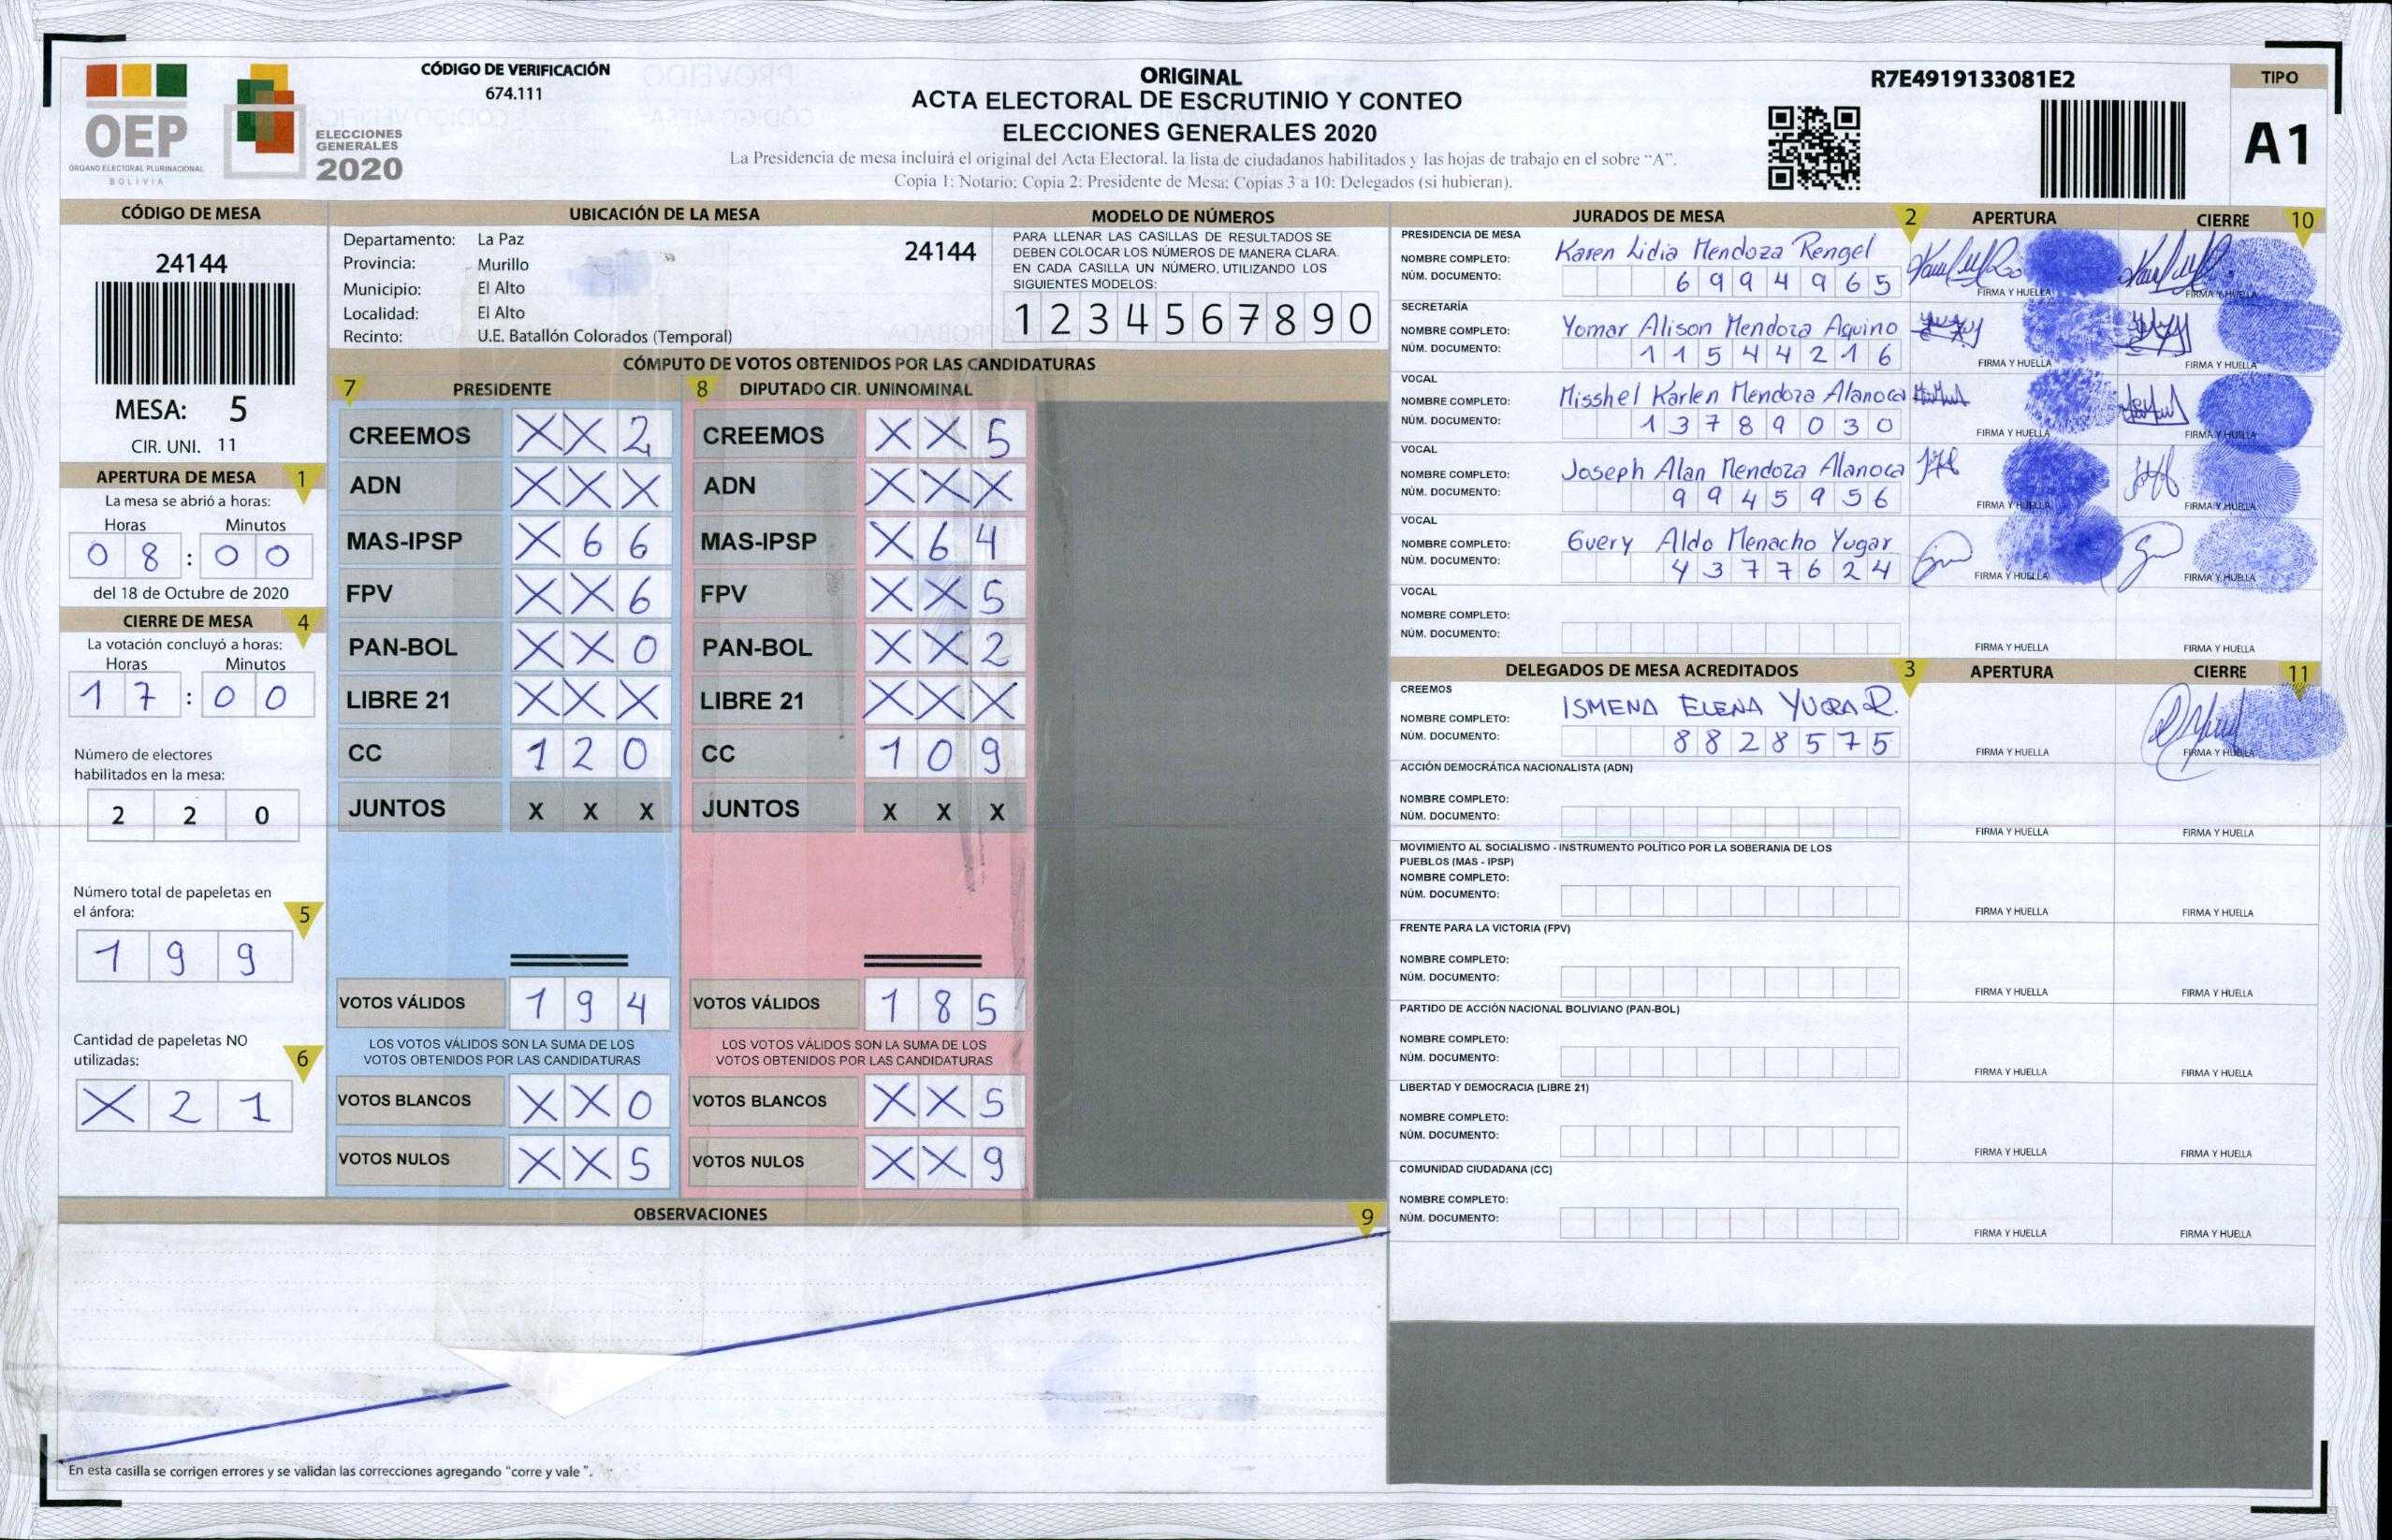 OEP
ORGANO ELECTORAL PLURINACIONAL
BOLIVIA
ELECCIONES
GENERALES
2020
CÓDIGO DE VERIFICACIÓN
674.111
ORIGINAL
ACTA ELECTORAL DE ESCRUTINIO Y CONTEO
ELECCIONES GENERALES 2020
La Presidencia de mesa incluirá el original del Acta Electoral, la lista de ciudadanos habilitados y las hojas de trabajo en el sobre “A”.
Copia 1: Notario; Copia 2: Presidente de Mesa; Copias 3 a 10: Delegados (si hubieran).
R7E4919133081E2
TIPO
A1
CÓDIGO DE MESA
24144
MESA: 5
CIR. UNI. 11
APERTURA DE MESA 1
La mesa se abrió a horas:
Horas Minutos
0 8 : 0 0
del 18 de Octubre de 2020
CIERRE DE MESA 4
La votación concluyó a horas:
Horas Minutos
1 7 : 0 0
Número de electores
habilitados en la mesa:
2 2 0
Número total de papeletas en
el ánfora: 5
1 9 9
Cantidad de papeletas NO
utilizadas: 6
X 2 1
UBICACIÓN DE LA MESA
Departamento: La Paz
24144
Provincia: Murillo
Municipio: El Alto
Localidad: El Alto
Recinto: U.E. Batallón Colorados (Temporal)
MODELO DE NÚMEROS
PARA LLENAR LAS CASILLAS DE RESULTADOS SE
DEBEN COLOCAR LOS NÚMEROS DE MANERA CLARA.
EN CADA CASILLA UN NÚMERO, UTILIZANDO LOS
SIGUIENTES MODELOS:
1 2 3 4 5 6 7 8 9 0
CÓMPUTO DE VOTOS OBTENIDOS POR LAS CANDIDATURAS
7 PRESIDENTE
CREEMOS X X 2
ADN X X X
MAS-IPSP X 6 6
FPV X X 6
PAN-BOL X X 0
LIBRE 21 X X X
CC 1 2 0
JUNTOS X X X
VOTOS VÁLIDOS 1 9 4
LOS VOTOS VÁLIDOS SON LA SUMA DE LOS
VOTOS OBTENIDOS POR LAS CANDIDATURAS
VOTOS BLANCOS X X 0
VOTOS NULOS X X 5
8 DIPUTADO CIR. UNINOMINAL
CREEMOS X X 5
ADN X X X
MAS-IPSP X 6 4
FPV X X 5
PAN-BOL X X 2
LIBRE 21 X X X
CC 1 0 9
JUNTOS X X X
VOTOS VÁLIDOS 1 8 5
LOS VOTOS VÁLIDOS SON LA SUMA DE LOS
VOTOS OBTENIDOS POR LAS CANDIDATURAS
VOTOS BLANCOS X X 5
VOTOS NULOS X X 9
OBSERVACIONES 9
En esta casilla se corrigen errores y se validan las correcciones agregando “corre y vale ”.
JURADOS DE MESA 2 APERTURA CIERRE 10
PRESIDENCIA DE MESA
NOMBRE COMPLETO: Karen Lidia Mendoza Rengel
NÚM. DOCUMENTO: 6 9 9 4 9 6 5
FIRMA Y HUELLA FIRMA Y HUELLA
SECRETARÍA
NOMBRE COMPLETO: Yomar Alison Mendoza Aquino
NÚM. DOCUMENTO: 1 1 5 4 4 2 1 6
FIRMA Y HUELLA FIRMA Y HUELLA
VOCAL
NOMBRE COMPLETO: Misshel Karlen Mendoza Alanoca
NÚM. DOCUMENTO: 1 3 7 8 9 0 3 0
FIRMA Y HUELLA FIRMA Y HUELLA
VOCAL
NOMBRE COMPLETO: Joseph Alan Mendoza Alanoca
NÚM. DOCUMENTO: 9 9 4 5 9 5 6
FIRMA Y HUELLA FIRMA Y HUELLA
VOCAL
NOMBRE COMPLETO: Guery Aldo Menacho Yugar
NÚM. DOCUMENTO: 4 3 7 7 6 2 4
FIRMA Y HUELLA FIRMA Y HUELLA
VOCAL
NOMBRE COMPLETO:
NÚM. DOCUMENTO:
FIRMA Y HUELLA FIRMA Y HUELLA
DELEGADOS DE MESA ACREDITADOS 3 APERTURA CIERRE 11
CREEMOS
NOMBRE COMPLETO: ISMENA ELENA YUGRA R.
NÚM. DOCUMENTO: 8 8 2 8 5 7 5
FIRMA Y HUELLA FIRMA Y HUELLA
ACCIÓN DEMOCRÁTICA NACIONALISTA (ADN)
NOMBRE COMPLETO:
NÚM. DOCUMENTO:
FIRMA Y HUELLA FIRMA Y HUELLA
MOVIMIENTO AL SOCIALISMO - INSTRUMENTO POLÍTICO POR LA SOBERANIA DE LOS
PUEBLOS (MAS - IPSP)
NOMBRE COMPLETO:
NÚM. DOCUMENTO:
FIRMA Y HUELLA FIRMA Y HUELLA
FRENTE PARA LA VICTORIA (FPV)
NOMBRE COMPLETO:
NÚM. DOCUMENTO:
FIRMA Y HUELLA FIRMA Y HUELLA
PARTIDO DE ACCIÓN NACIONAL BOLIVIANO (PAN-BOL)
NOMBRE COMPLETO:
NÚM. DOCUMENTO:
FIRMA Y HUELLA FIRMA Y HUELLA
LIBERTAD Y DEMOCRACIA (LIBRE 21)
NOMBRE COMPLETO:
NÚM. DOCUMENTO:
FIRMA Y HUELLA FIRMA Y HUELLA
COMUNIDAD CIUDADANA (CC)
NOMBRE COMPLETO:
NÚM. DOCUMENTO:
FIRMA Y HUELLA FIRMA Y HUELLA